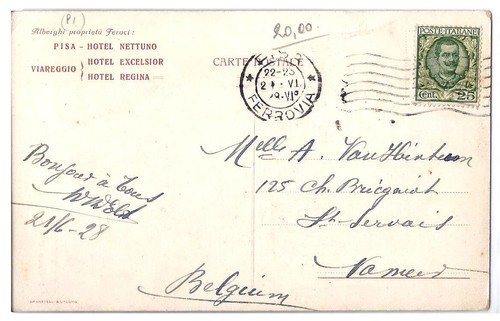 (PI.)
20,00.
Alberghi proprietà Feroci:
PISA - HOTEL NETTUNO
VIAREGGIO HOTEL EXCELSIOR
HOTEL REGINA
CARTE POSTALE
22-23
VI
FERROVIA
POSTE ITALIANE
Cent. 25
Melle A. Van
125 Ch.
St-Servais
Namur
Belgium
Bonjour à tous
21/6-28